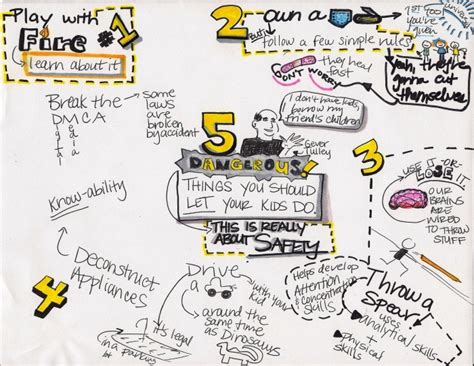 Play with
Fire #1
learn about it
2 own a
but follow a few simple rules
1st tool
you're
given
they heal
fast
DON'T WORRY
Yeah, they're
gonna cut
themselves
Break the
DMCA
some
laws
are
broken
by accident
I don't have kids,
I borrow my
friend's children
Gever
Tulley
5
DANGEROUS!
THINGS YOU SHOULD
LET YOUR KIDS DO
THIS IS REALLY
ABOUT SAFETY
3
USE IT OR
LOSE IT
OUR
BRAINS
ARE
WIRED
TO THROW
STUFF
Throw a
Spear
uses
analytical skills
+
physical
skills
Helps develop
Attention
& Concentration
Skills
Know-ability
4 Deconstruct
Appliances
Drive
a
with your
kid
around the
same time
as Dinosaurs
it's legal
in a parking
lot